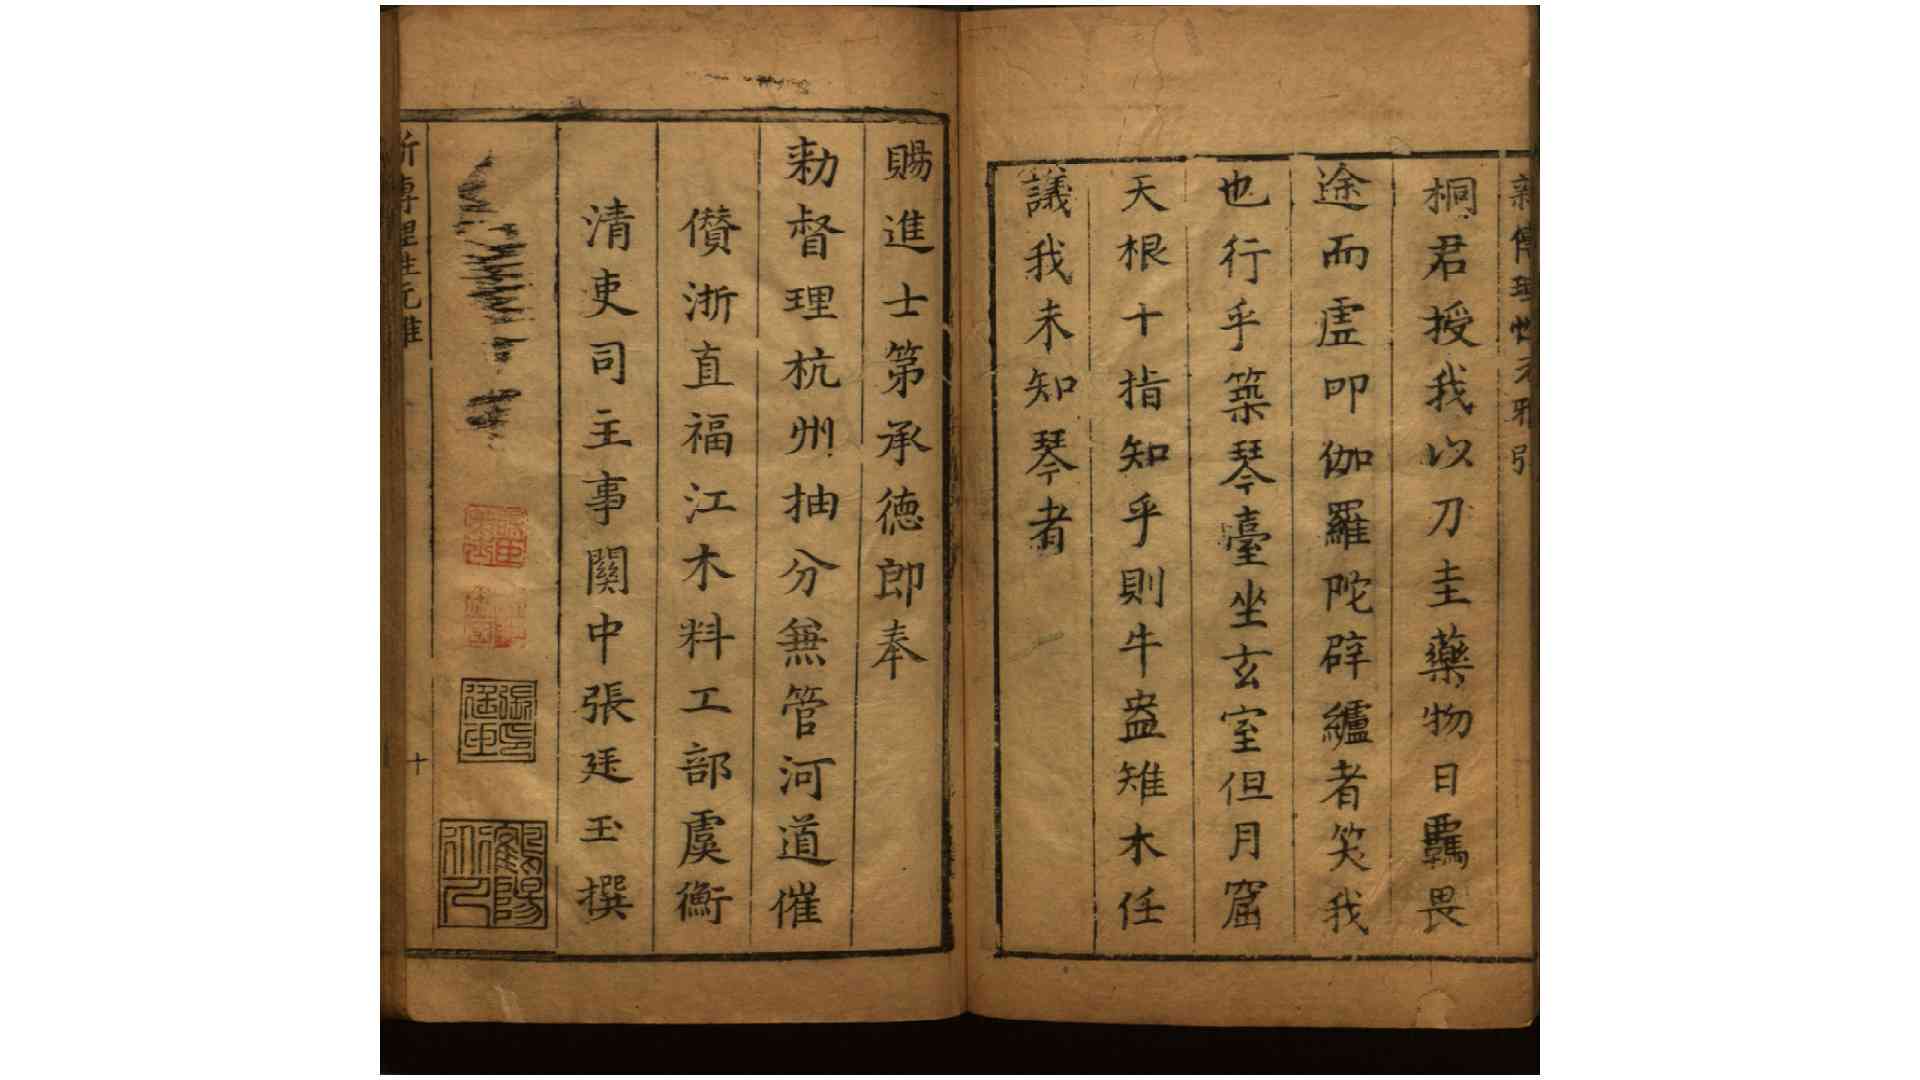 新傳理性元雅引
桐君授我以刀圭藥物日羈畏
途而虗叩伽羅陀辟纑者笑我
也行乎築琴臺坐玄室但月窟
天根十指知乎則牛盎雉木任
議我未知琴者
賜進士第承德郎奉
勅督理杭州抽分兼管河道催
儧浙直福江木料工部虞衡
清吏司主事關中張廷玉撰
張廷玉印
新傳理性元雅
十